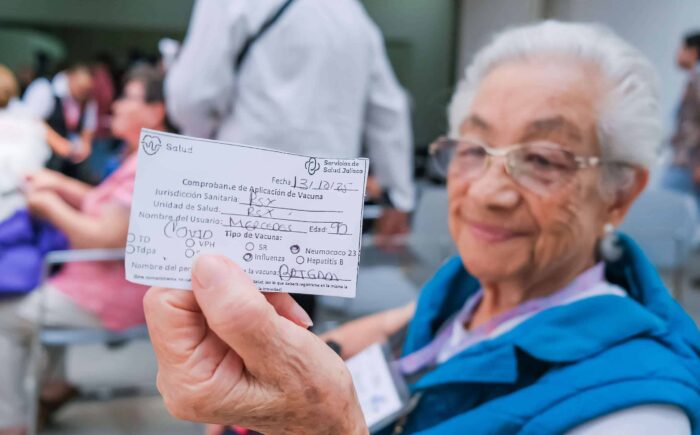 Salud
Servicios de
Salud Jalisco
Fecha 13/10/25
Comprobante de Aplicación de Vacuna
Jurisdicción Sanitaria: RSX
Unidad de Salud: RSX
Nombre del Usuario: MERCEDES Edad 90
Tipo de Vacuna:
COVID
TD VPH SR Neumococo 23
Tdpa Influenza Hepatitis B
Nombre del la vacuna: BRIGADA